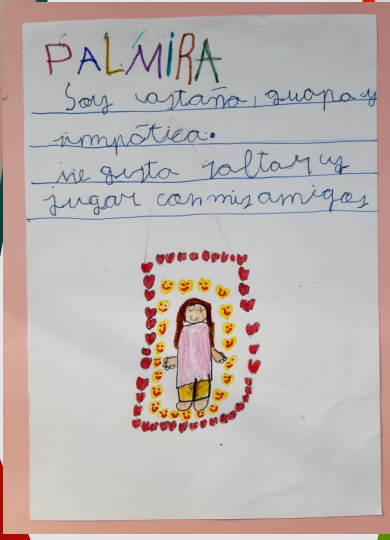 PALMIRA
Soy castaña, guapa y
simpática.
me gusta saltar y
jugar con mis amigos